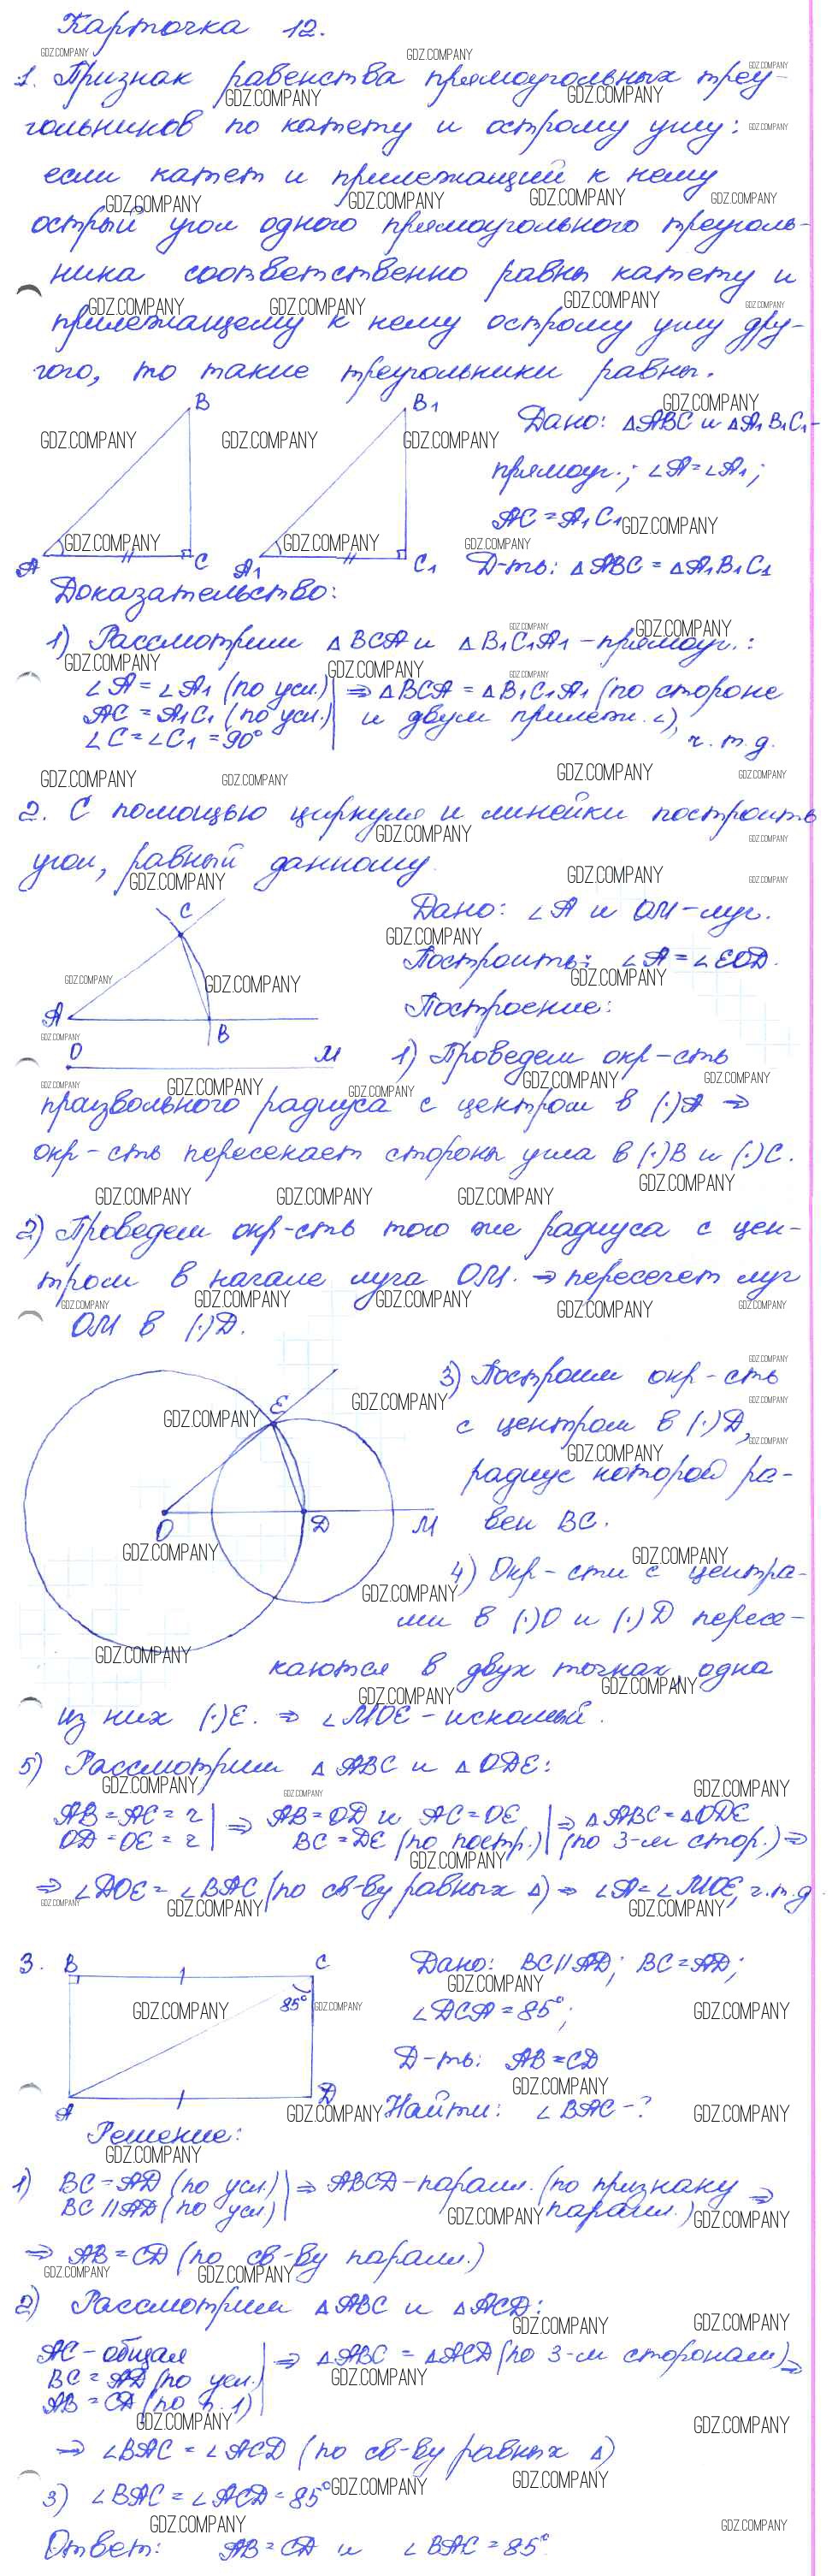 Карточка 12.
1. Признак равенства прямоугольных треу-
гольников по катету и острому углу:
если катет и прилежащий к нему
острый угол одного прямоугольного треуголь-
ника соответственно равны катету и
прилежащему к нему острому углу дру-
гого, то такие треугольники равны.
B B1
A C A1 C1
Дано: △ABC и △A1B1C1 -
прямоуг.; ∠A = ∠A1;
AC = A1C1
Д-ть: △ABC = △A1B1C1
Доказательство:
1) Рассмотрим △BCA и △B1C1A1 - прямоуг.:
∠A = ∠A1 (по усл.) | ⇒ △BCA = △B1C1A1 (по стороне
AC = A1C1 (по усл.) | и двум прилеж. ∠),
∠C = ∠C1 = 90° ч.т.д.
2. С помощью циркуля и линейки построить
угол, равный данному.
C
A B
O M
Дано: ∠A и OM - луч.
Построить: ∠A = ∠EOD.
Построение:
1) Проведем окр-сть
праизвольного радиуса с центром в (·)A ⇒
окр-сть пересекает стороны угла в (·)B и (·)C.
2) Проведем окр-сть того же радиуса с цен-
тром в начале луча OM. ⇒ пересечет луч
OM в (·)D.
E
O D M
3) Построим окр-сть
с центром в (·)D,
радиус которой ра-
вен BC.
4) Окр-сти с центра-
ми в (·)O и (·)D пересе-
каются в двух точках, одна
из них (·)E. ⇒ ∠MOE - искомый.
5) Рассмотрим △ABC и △ODE:
AB = AC = r | ⇒ AB = OD и AC = OE | ⇒ △ABC = △ODE
OD = OE = r | BC = DE (по постр.) | (по 3-м стор.) ⇒
⇒ ∠DOE = ∠BAC (по св-ву равных △) ⇒ ∠A = ∠MOE, ч.т.д
3. B C
85°
A D
Дано: BC || AD; BC = AD;
∠DCA = 85°;
Д-ть: AB = CD
Найти: ∠BAC - ?
Решение:
1) BC = AD (по усл.) | ⇒ ABCD - паралл. (по признаку ⇒
BC || AD (по усл) | паралл.)
⇒ AB = CD (по св-ву паралл.)
2) Рассмотрим △ABC и △ACD:
AC - общая | ⇒ △ABC = △ACD (по 3-м сторонам) ⇒
BC = AD (по усл.)
AB = CD (по п. 1)
⇒ ∠BAC = ∠ACD (по св-ву равных △)
3) ∠BAC = ∠ACD = 85°
Ответ: AB = CD и ∠BAC = 85°
GDZ.COMPANY